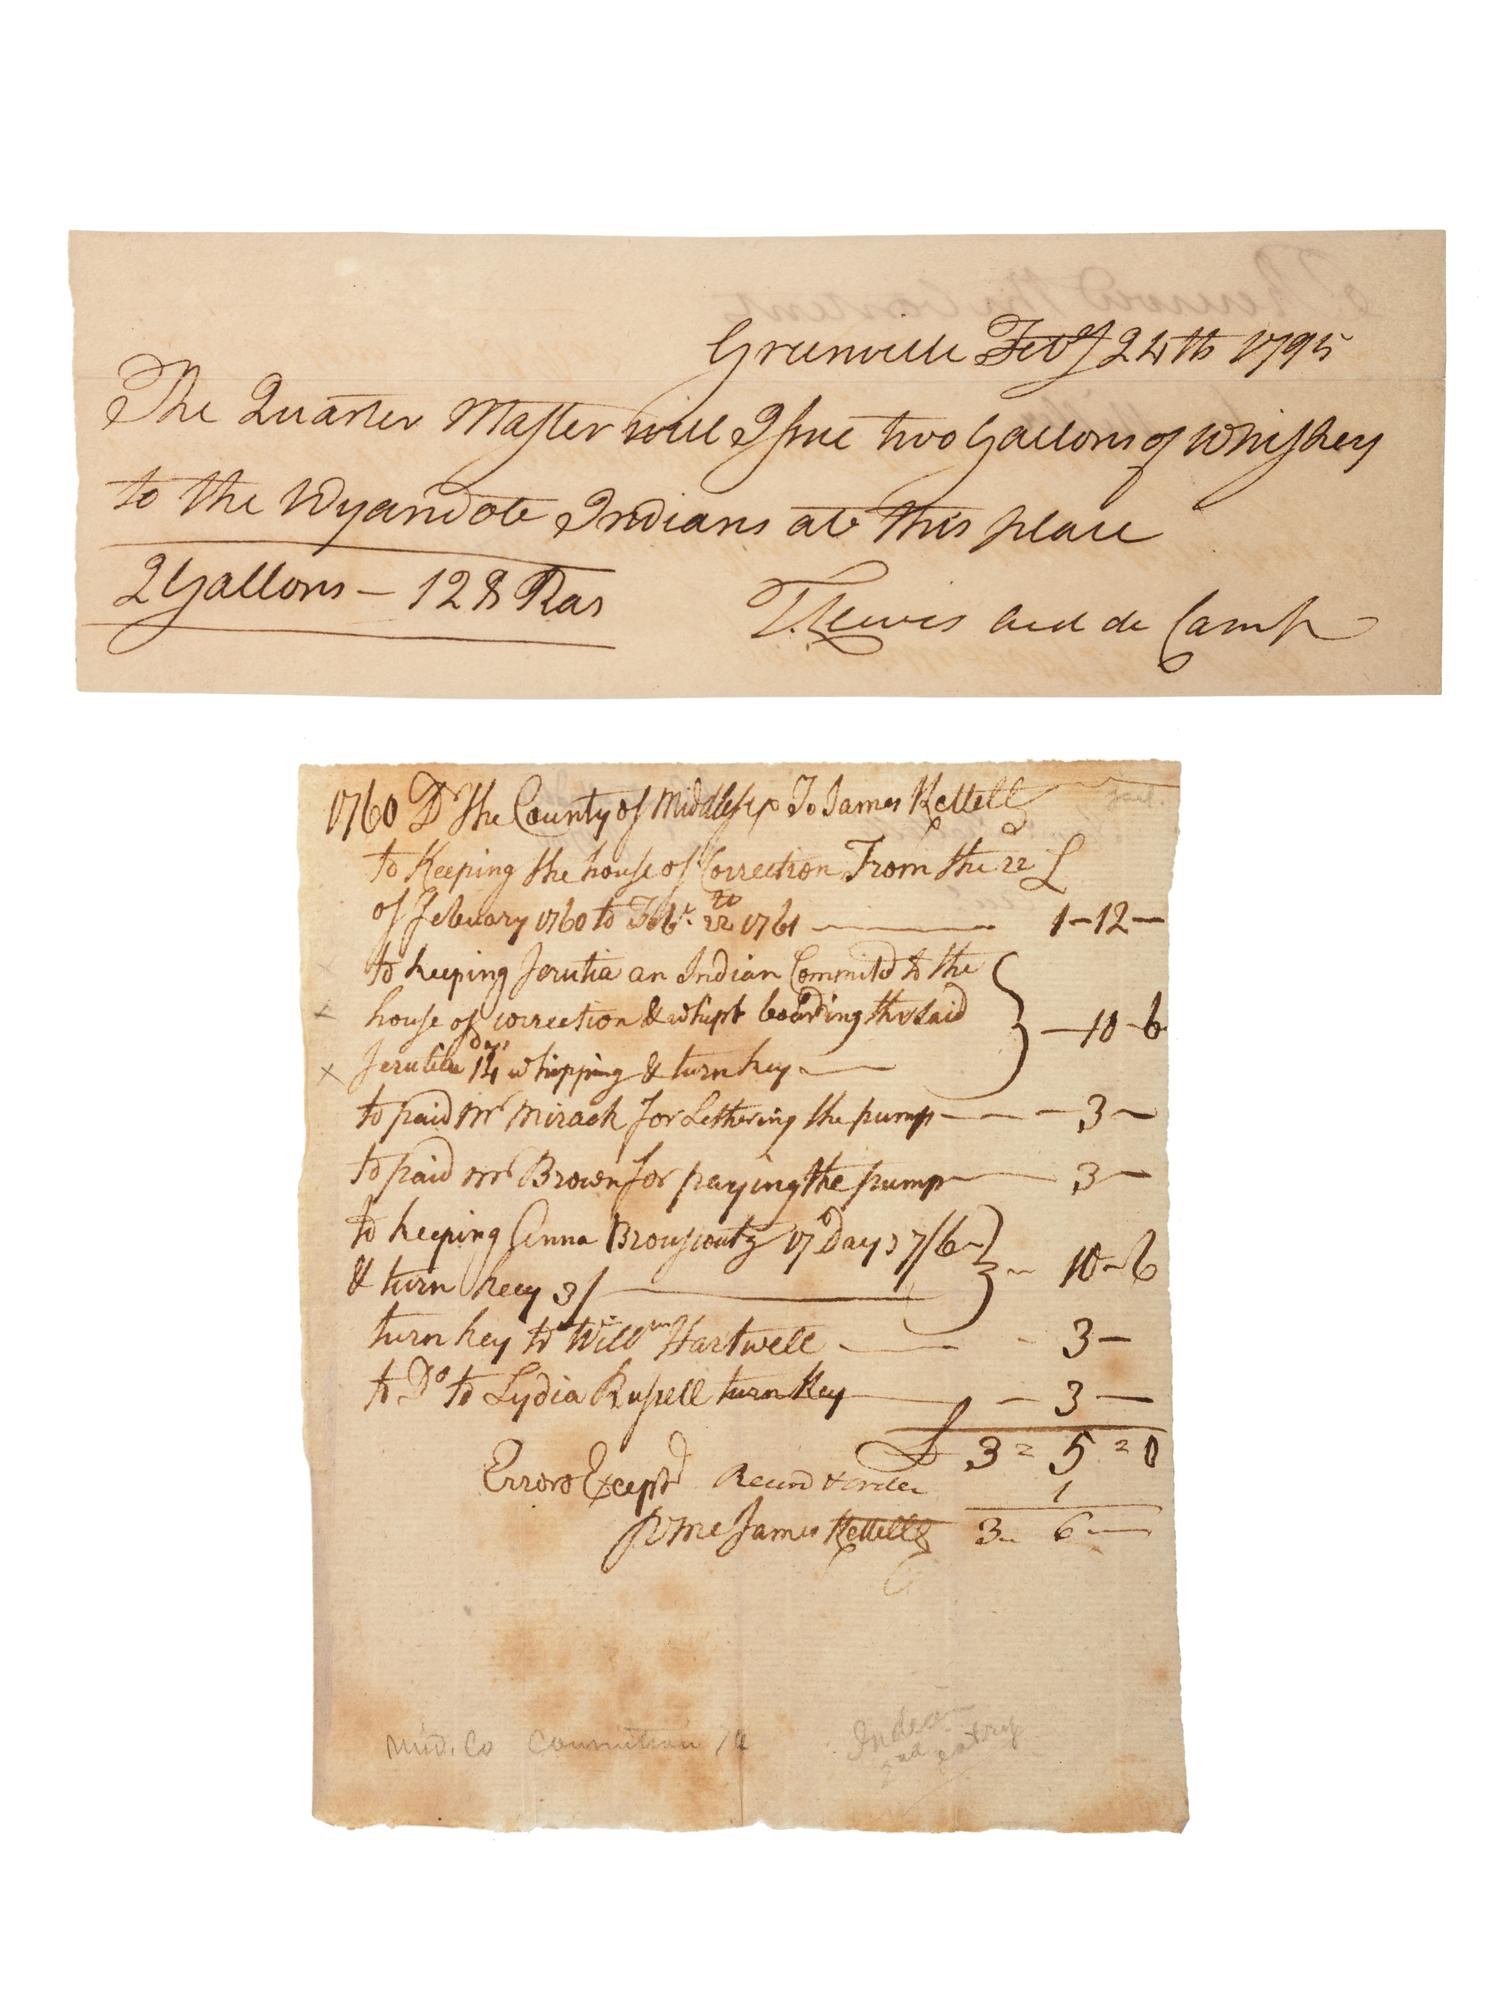 Greenville Feby 24th 1795
The Quarter Master will Issue two Gallons of Whiskey
to the Wyandote Indians at this place
2 Gallons — 128 Ras
T. Lewis aid de Camp
1760 Dr the County of Middlesex To James Kettell
to Keeping the house of Correction From the 22d £
of Febuary 1760 to Febr. 22d 1761 — 1-12-
to keeping Jerutia an Indian Commitd to the
house of correction & whipt boarding the said — 10-6
Jerutia 14 days whipping & turn key —
to paid Mr Mirack for Lethering the pump — 3 —
to paid Mr Brown for paying the pump — 3 —
to keeping Anna 17 Days 7/6
& turn key 3/ — 10-6
turn key to Willm Hartwell — 3 —
to Do to Lydia Russell turn key — 3 —
£ 3 = 5 = 0
Errors Exceptd Recind & order 1
pr me James Kettell 3 6 —
Mid. Co 
Index
2nd entry